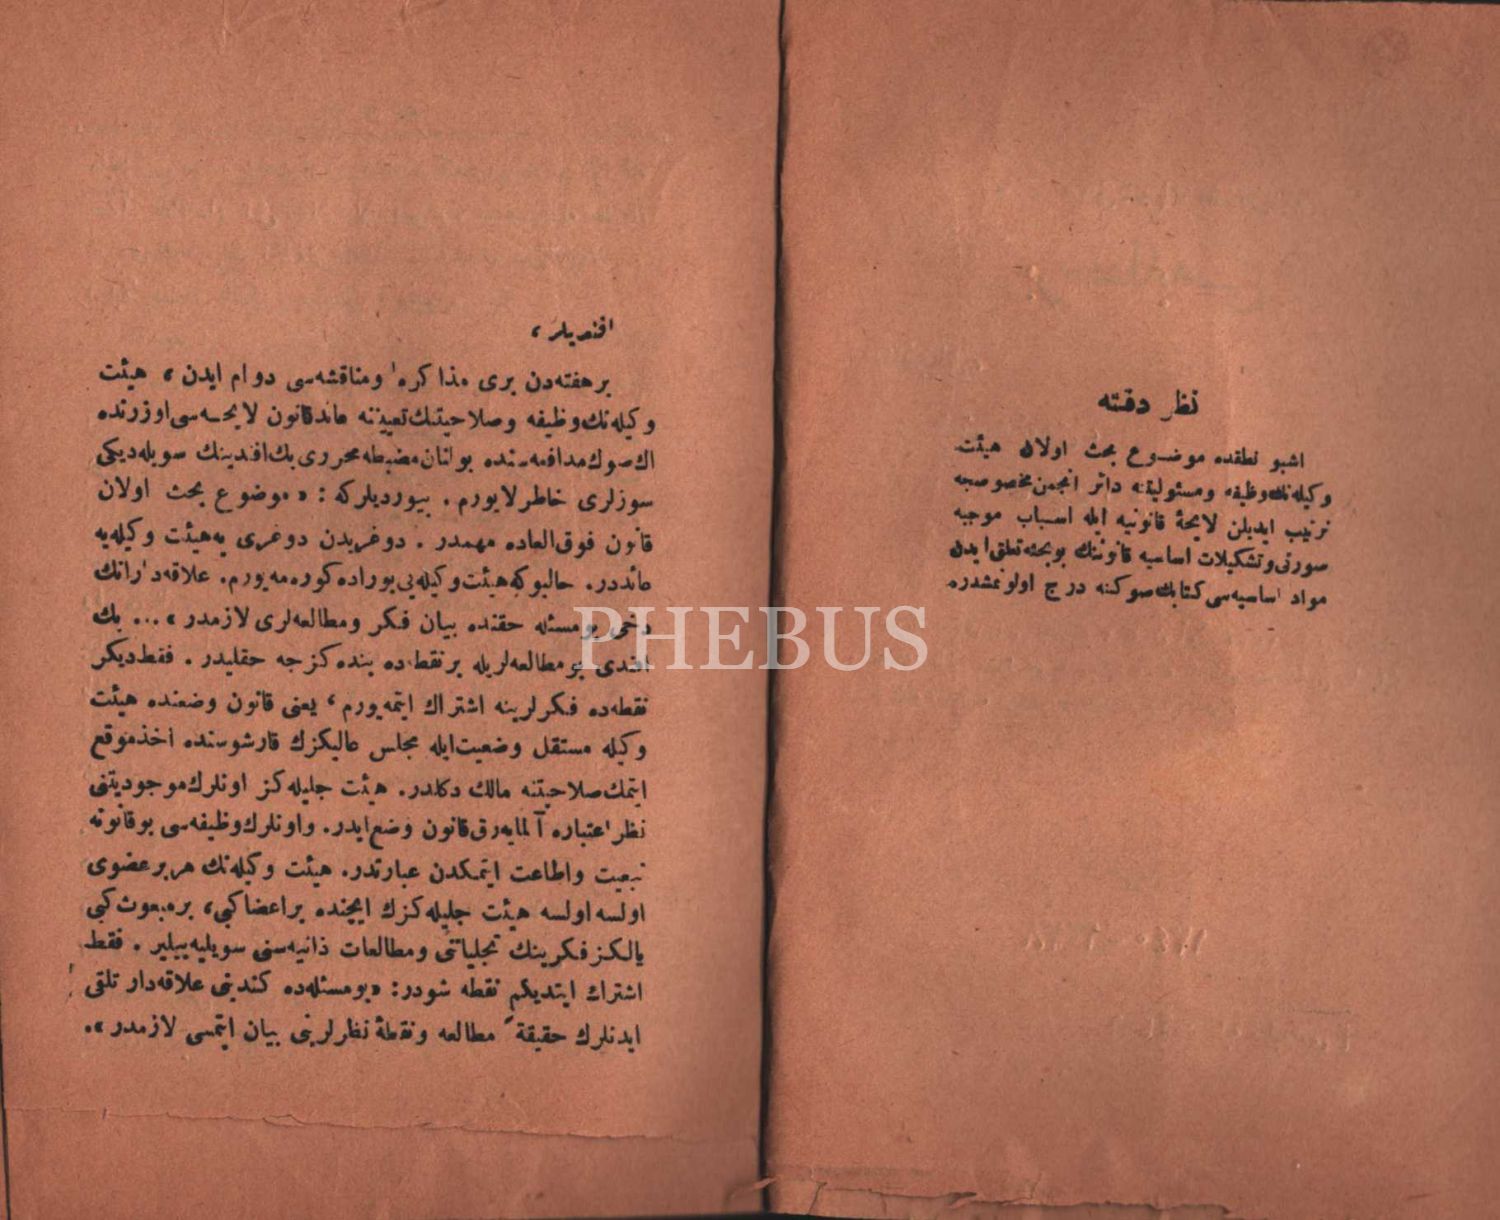 نظر دقته
اشبو نطقده موضوع بحث اولان هیئت
وكیله‌نك وظیفه و مسئولیتنه دائر انجمن مخصوصجه
ترتیب ایدیلن لایحهٔ قانونیه ایله اسباب موجبه
صورتی و تشكیلات اساسیه قانوننك بو بحثه تعلق ایدن
مواد اساسیه‌سی كتابك صوكنه درج اولونمشدر.
افندیلر ،
بر هفته‌دن بری مذاكره و مناقشه‌سی دوام ایدن ، هیئت
وكیله‌نك وظیفه و صلاحیتنك تعییننه عائد قانون لایحه‌سی اوزرنده
اك صوك مدافعه‌سنده بولنان مضبطه محرری بك افندینك سویله‌دیكی
سوزلری خاطرلایورم . بیوردیلركه : « موضوع بحث اولان
قانون فوق‌العاده مهمدر . دوغریدن دوغری یه هیئت وكیله‌یه
عائددر . حالبوكه هیئت وكیله‌یی بوراده كوره‌مه‌یورم . علاقه‌دارانك
دخی بو مسئله حقنده بیان فكر و مطالعه‌لری لازمدر » ... بك
افندی بو مطالعه‌لریله بر نقطه‌ده بنده‌كزجه حقلیدر . فقط دیكر
نقطه‌ده فكرلرینه اشتراك ایتمه‌یورم ، یعنی قانون وضعنده هیئت
وكیله مستقل وضعیت ایله مجلس عالیكزك قارشوسنده اخذ موقع
ایتمك صلاحیتنه مالك دكلدر . هیئت جلیله‌كز اونلرك موجودیتنی
نظر اعتباره آلمایه‌رق قانون وضع ایدر . و اونلرك وظیفه‌سی بو قانونه
تبعیت و اطاعت ایتمكدن عبارتدر . هیئت وكیله‌نك هر بر عضوی
اولسه اولسه هیئت جلیله‌كزك ایچنده بر اعضا كبی ، بر مبعوث كبی
یالكز فكرینك تجلیاتنی و مطالعات ذاتیه‌سنی سویلیه‌بیلیر . فقط
اشتراك ایتدیكم نقطه شودر : « بو مسئله‌ده كندینی علاقه‌دار تلقی
ایدنلرك حقیقةً مطالعه و نقطهٔ نظرلرینی بیان ایتمسی لازمدر » .
PHEBUS